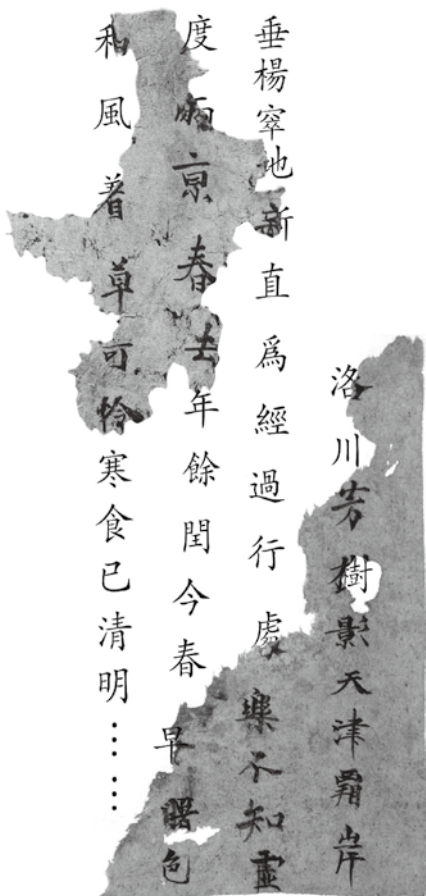 洛川芳樹影天津霸岸
垂楊窣地新直爲經過行處樂不知虛
度兩京春去年餘閏今春早曙色
和風著草可怜寒食已清明……